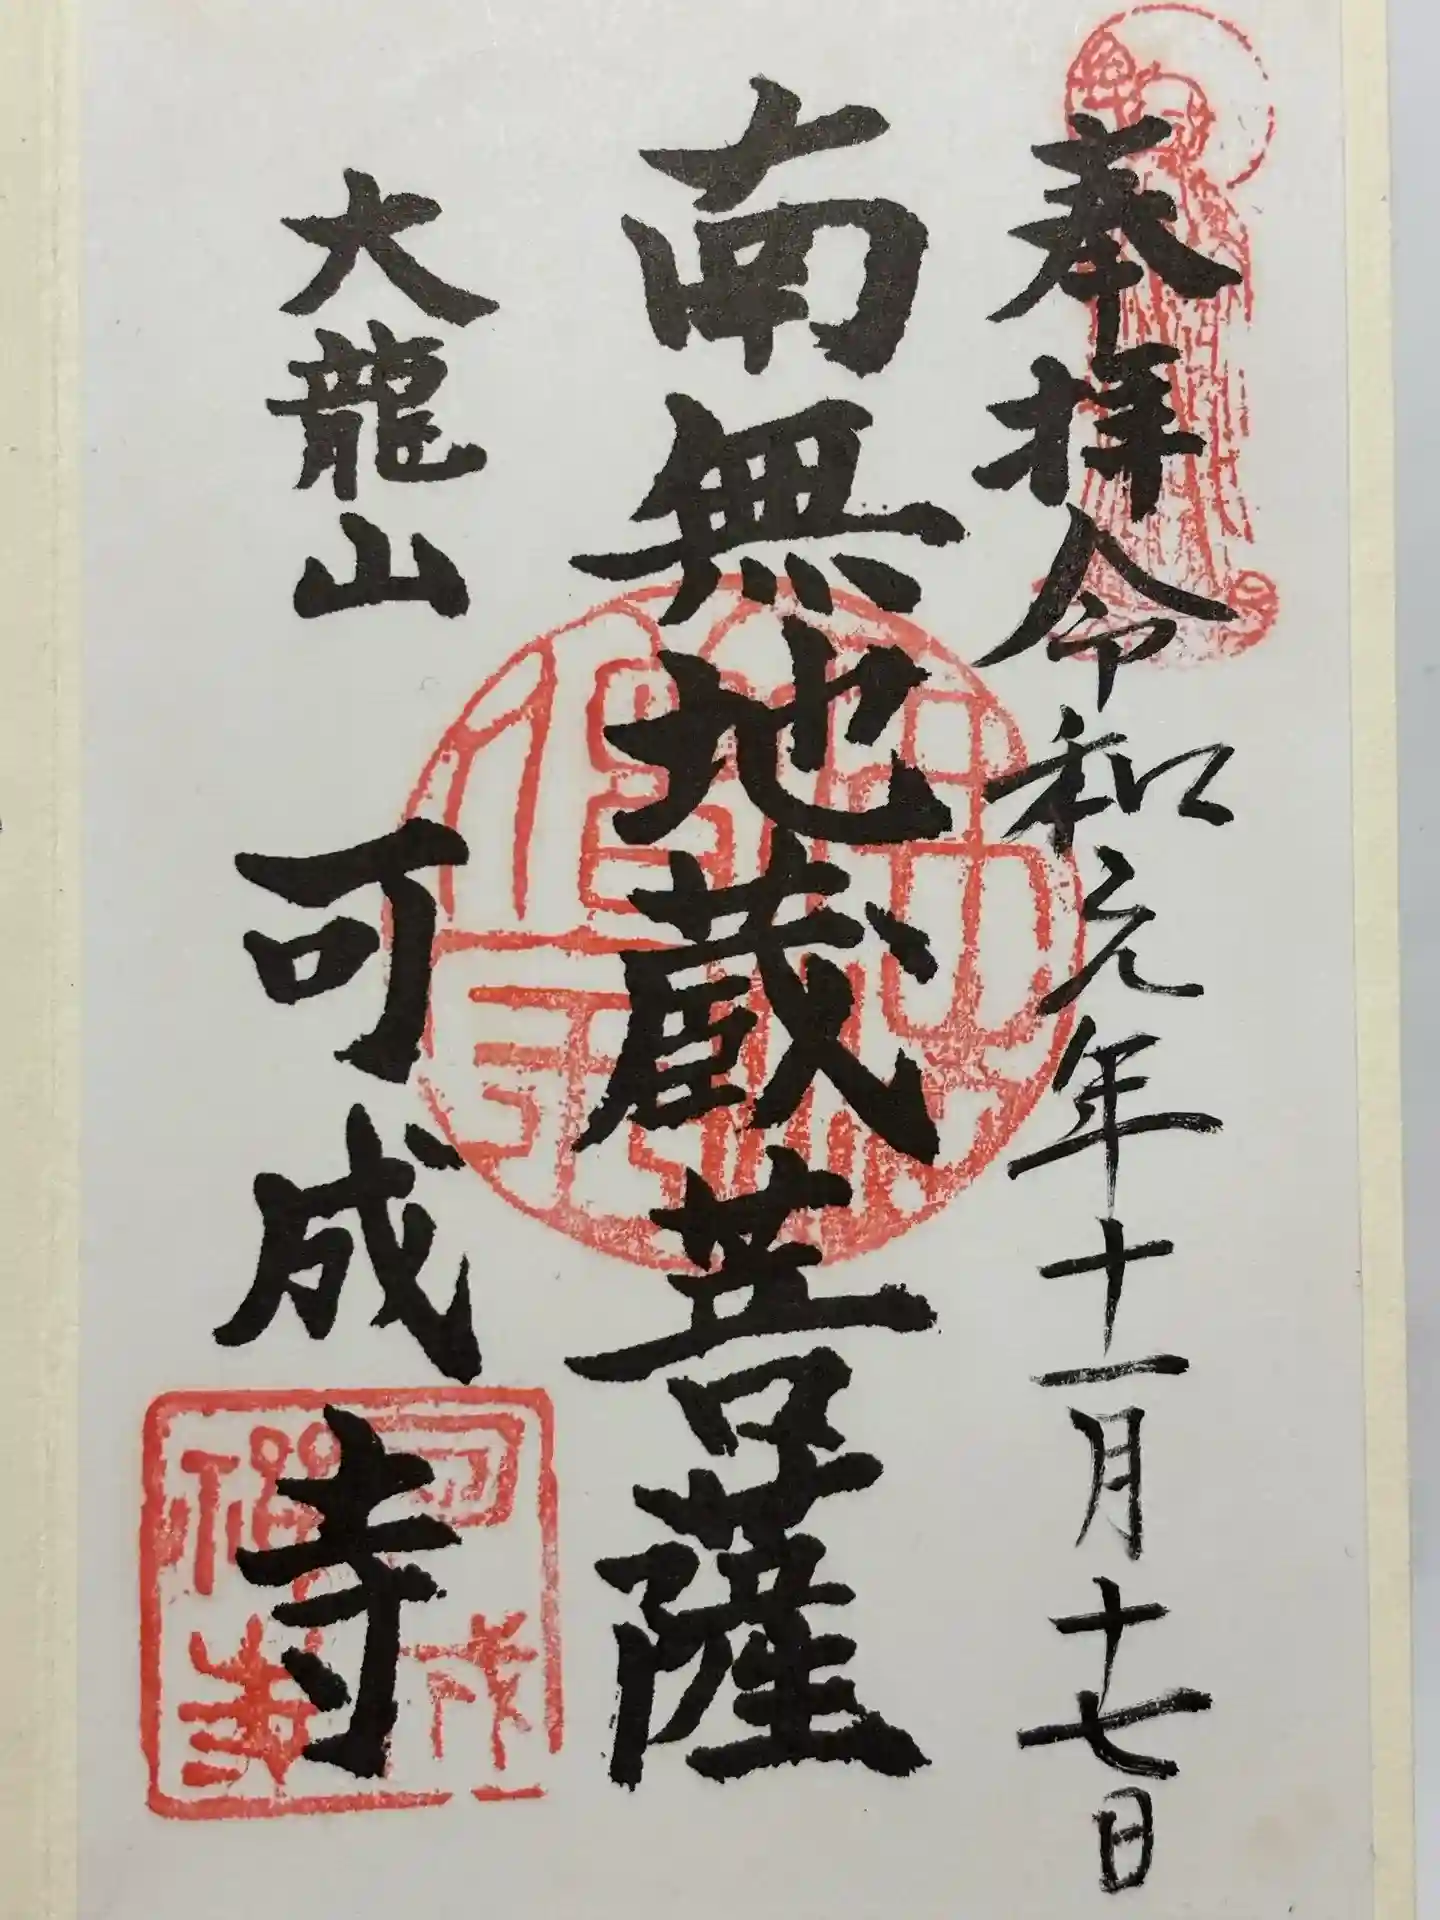 奉拝令和元年十一月十七日
南無地蔵菩薩
大龍山
可成寺
可成禅寺